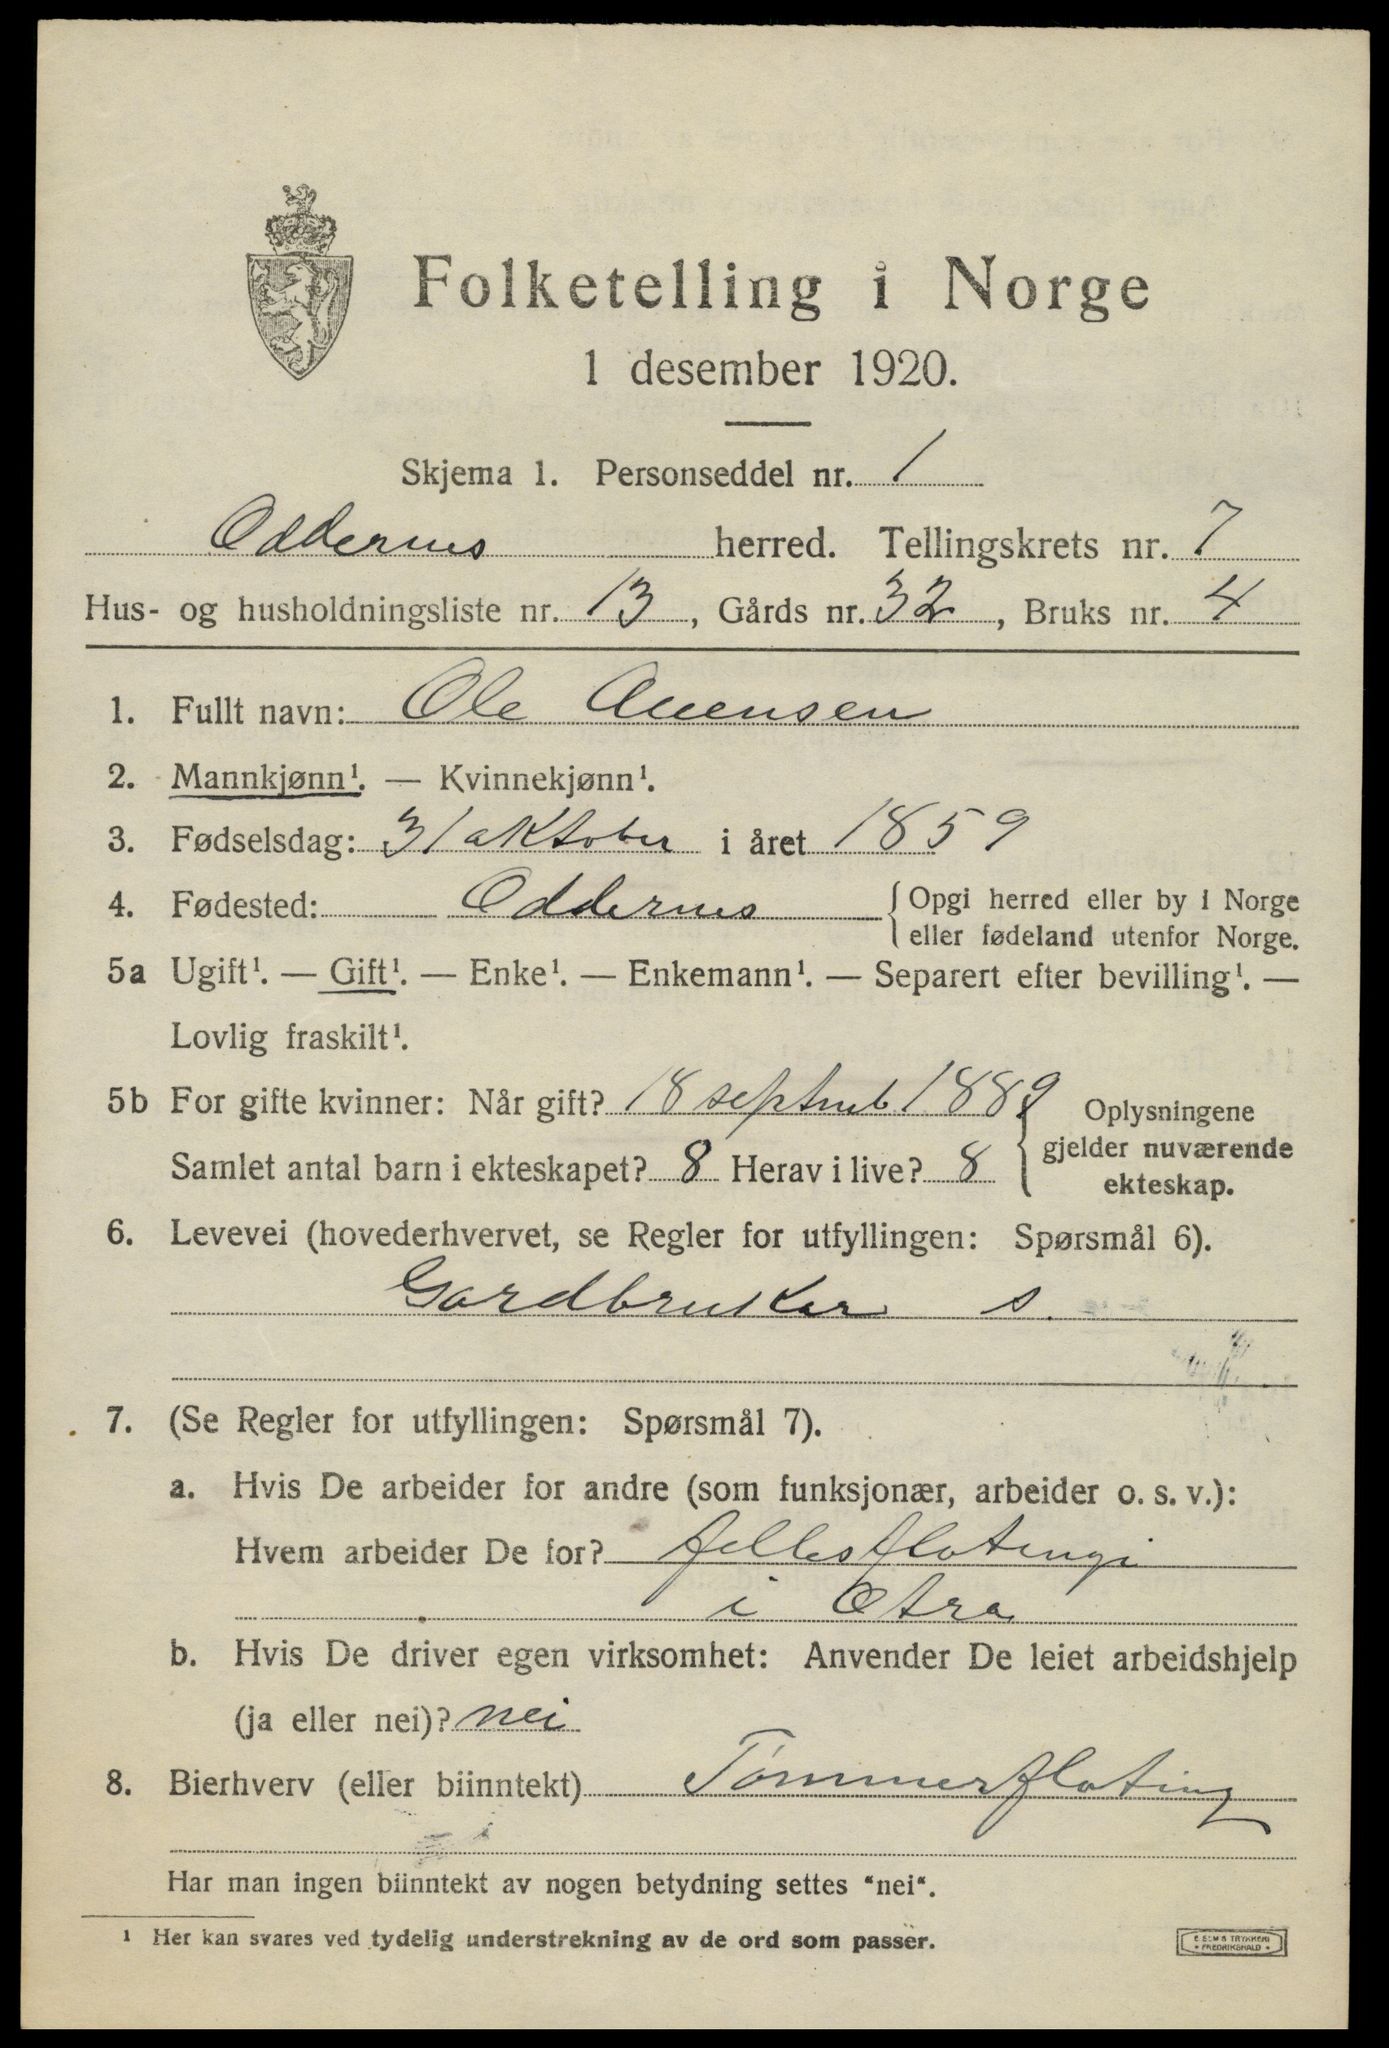 Folketelling i Norge
1 desember 1920.
Skjema 1. Personseddel nr. 1
Oddernes herred. Tellingskrets nr. 7
Hus- og husholdningsliste nr. 13, Gårds nr. 32, Bruks nr. 4
1. Fullt navn: Ole Auensen
2. Mannkjønn¹. — Kvinnekjønn¹.
3. Fødselsdag: 31 oktober i året 1859
4. Fødested: Oddernes {Opgi herred eller by i Norge
eller fødeland utenfor Norge.
5a Ugift¹. — Gift¹. — Enke¹. — Enkemann¹. — Separert efter bevilling¹. —
Lovlig fraskilt¹.
5b For gifte kvinner: Når gift? 18 septemb 1889
Samlet antal barn i ekteskapet? 8 Herav i live? 8
Oplysningene
gjelder nuværende
ekteskap.
6. Levevei (hovederhvervet, se Regler for utfyllingen: Spørsmål 6).
Gardbruker s.
7. (Se Regler for utfyllingen: Spørsmål 7).
a. Hvis De arbeider for andre (som funksjonær, arbeider o. s. v.):
Hvem arbeider De for? fellesflotingi
i Otra
b. Hvis De driver egen virksomhet: Anvender De leiet arbeidshjelp
(ja eller nei)? nei
8. Bierhverv (eller biinntekt) Tømmerfloting
Har man ingen biinntekt av nogen betydning settes "nei".
¹ Her kan svares ved tydelig understrekning av de ord som passer.
E. SEM'S TRYKKERI
FREDRIKSHALD